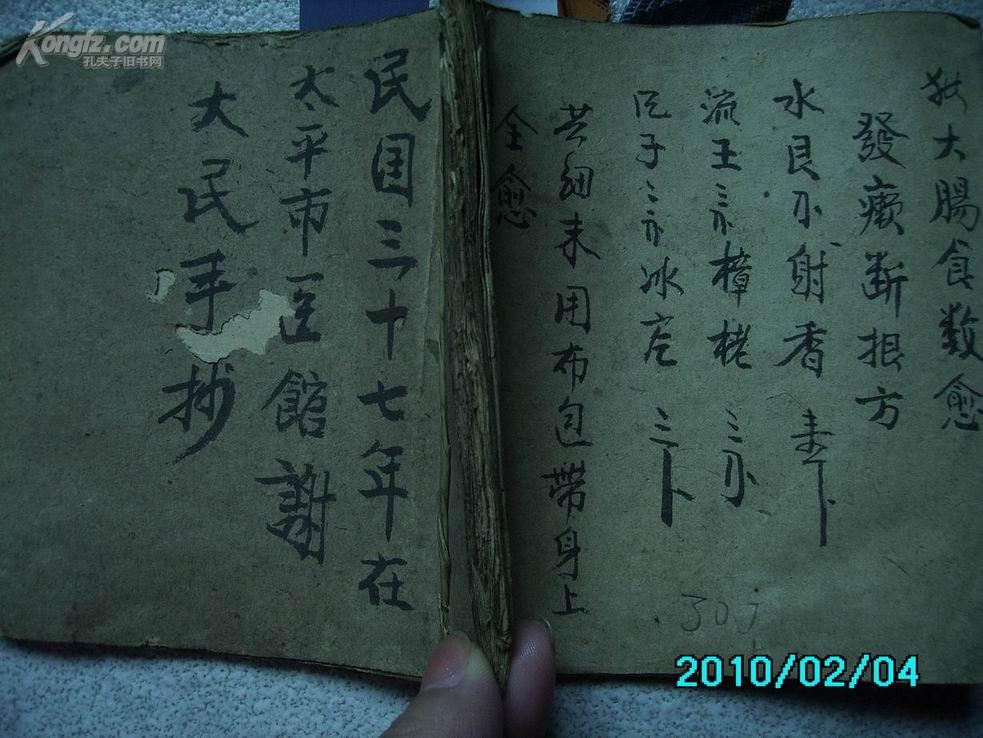 Kongfz.com
孔夫子旧书网
大腸食数愈
發癀断根方
水艮 射香
流王三 樟栳 三
子三 冰片 三
共细末用布包帶身上
全愈
民国三十七年在
太平市医館謝
大民手抄
300
2010/02/04